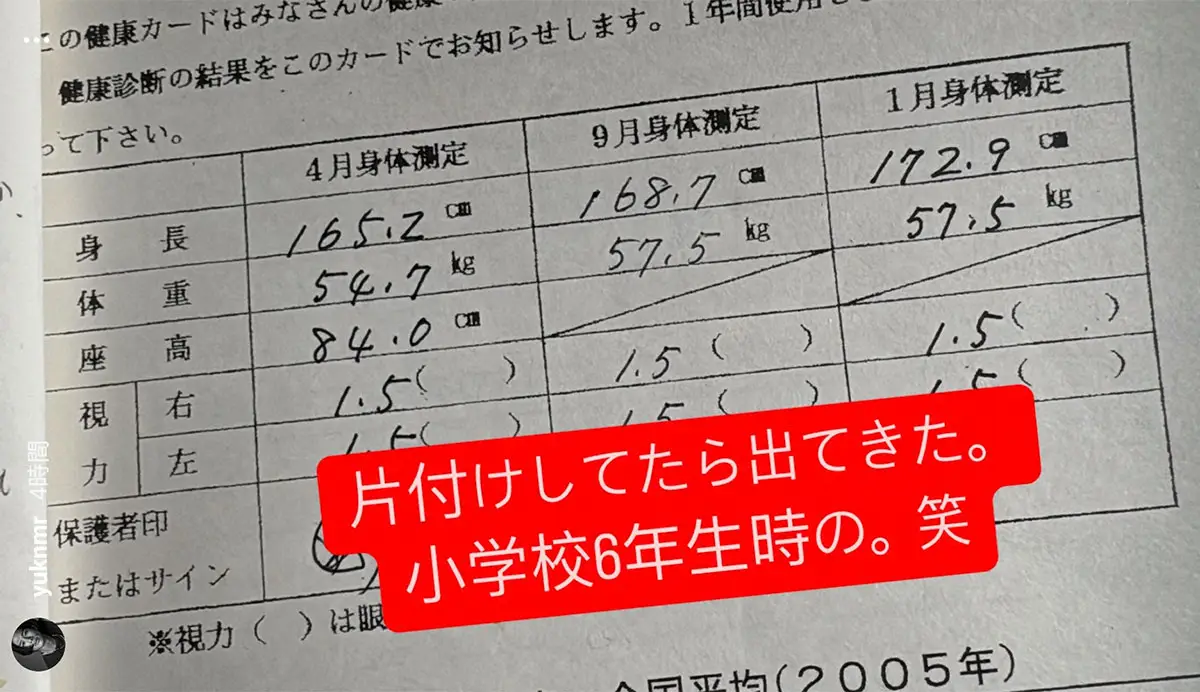 この健康カードはみなさんの健康
健康診断の結果をこのカードでお知らせします。1年間使用し
って下さい。
4月身体測定 9月身体測定 1月身体測定
身長 165.2 cm 168.7 cm 172.9 cm
体重 54.7 kg 57.5 kg 57.5 kg
座高 84.0 cm
視力 右 1.5( ) 1.5( ) 1.5( )
左 1.5( ) 1.5( ) 1.5( )
保護者印
またはサイン
※視力( )は眼
全国平均(2005年)
片付けしてたら出てきた。
小学校6年生時の。笑
yuknmr 4時間